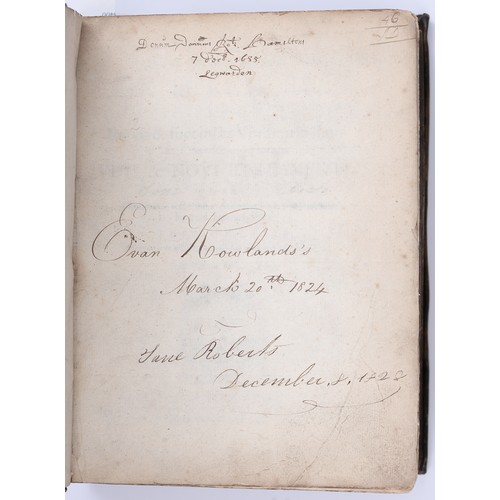 46
Donum Domini Rob. Hamilton
7 Dec. 1685.
Legwarden
Evan Rowlands's
March 20th 1824
Jane Roberts
December, 8, 1828